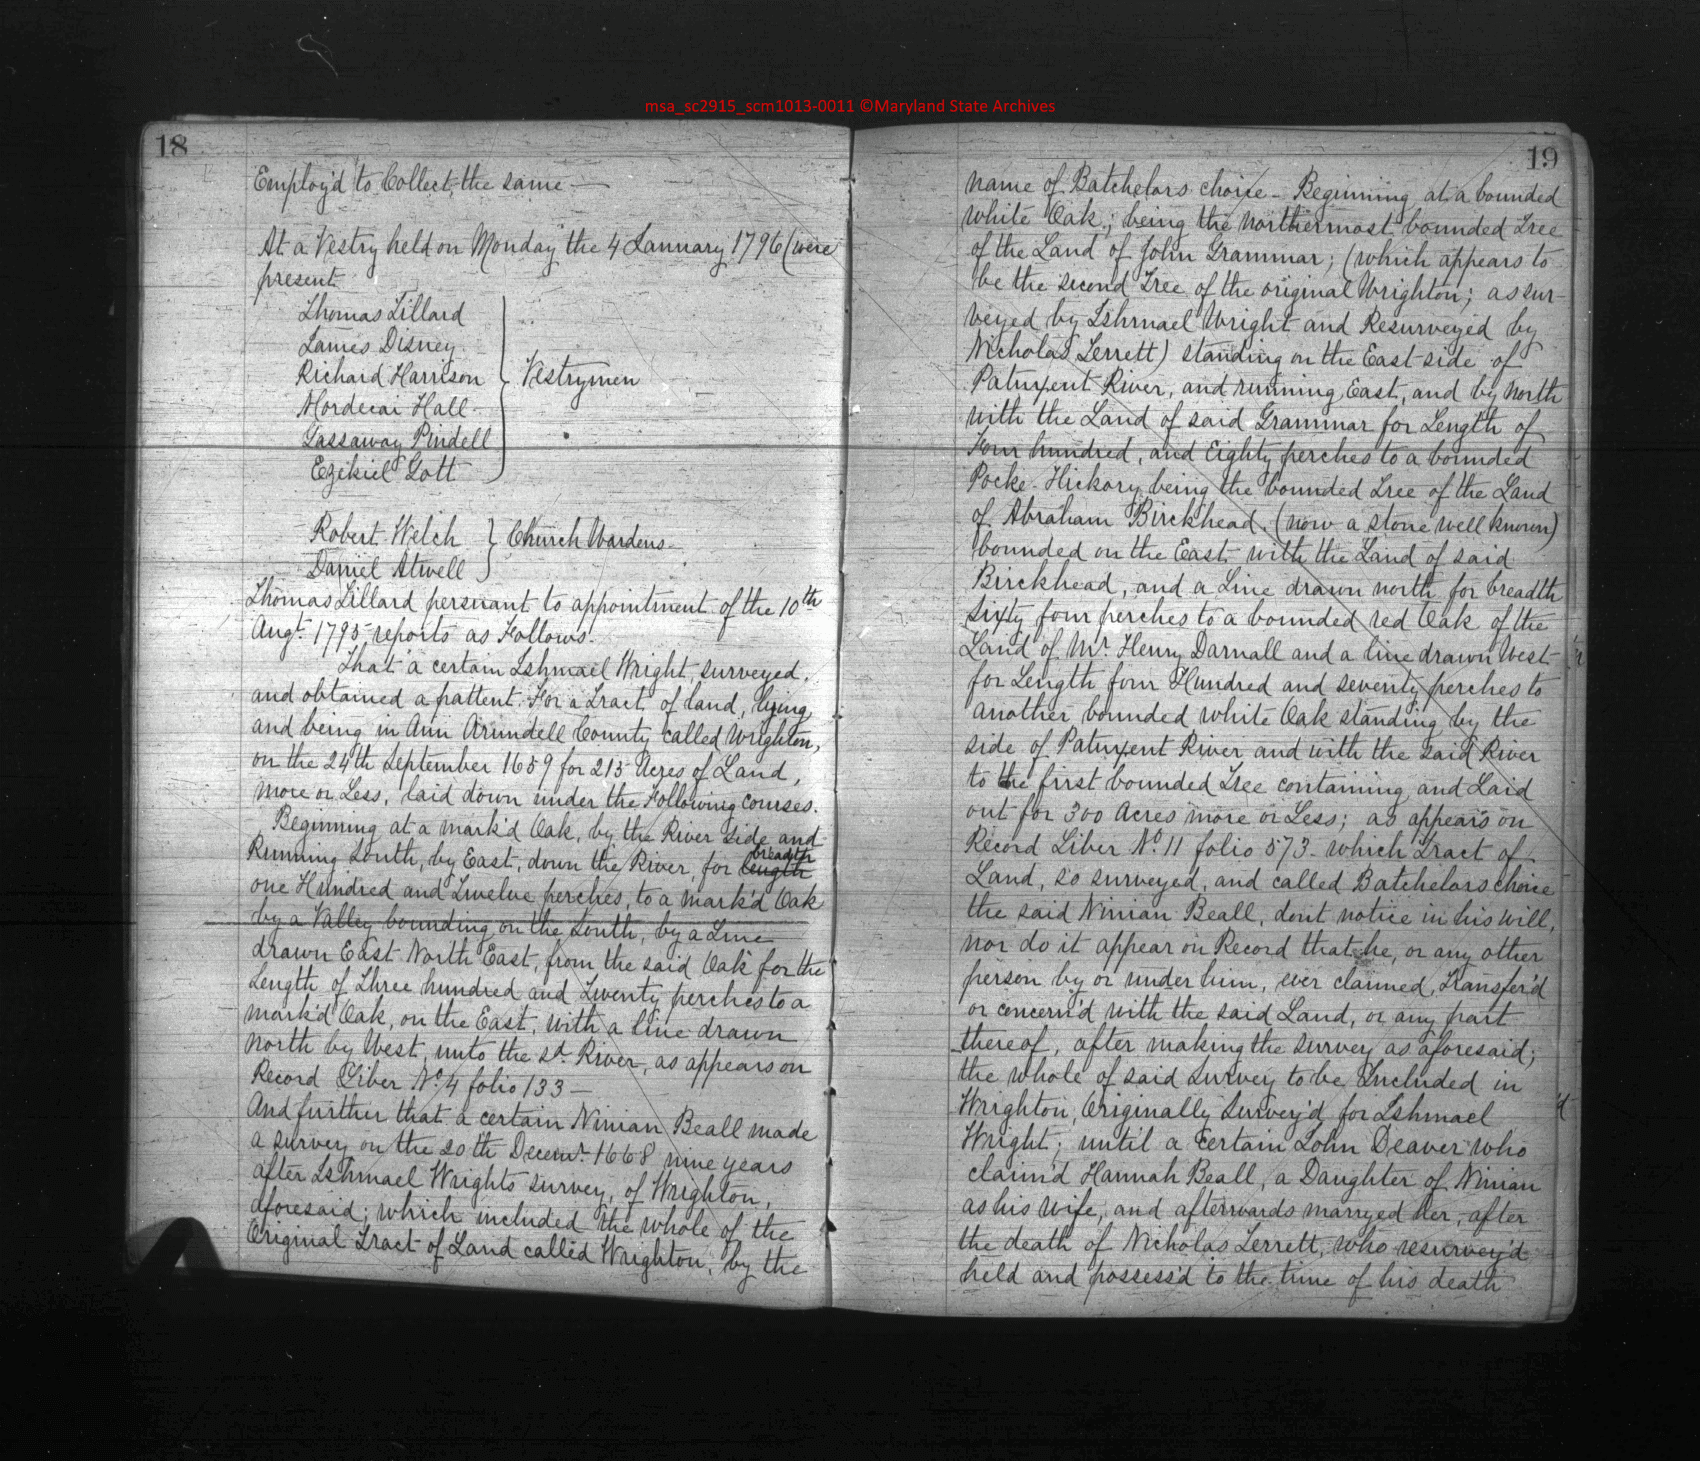 msa_sc2915_scm1013-0011 ©Maryland State Archives
18
Employ'd to Collect the same —
At a Vestry held on Monday the 4 January 1796 (were
present
Thomas Tillard
James Disney
Richard Harrison
Mordecai Hall
Gassaway Pindell
Ezekiel Gott
Vestrymen
Robert Welch
Daniel Atwell
Church Wardens
Thomas Tillard persuant to appointment of the 10th
Augt. 1795 reports as Follows.
That a certain Ishmael Wright, surveyed,
and obtained a pattent For a Tract of land, lying
and being in Ann Arundell County called Wrighton,
on the 24th September 1659 for 215 Acres of Land,
more or Less, laid down under the Following courses.
Beginning at a mark'd Oak, by the River side and
Running South, by East, down the River, for length breadth
one Hundred and Twelve perches, to a mark'd Oak
by a Valley bounding on the South, by a Line
drawn East North East, from the said Oak for the
Length of Three hundred and Twenty perches to a
mark'd Oak, on the East, with a line drawn
North by West, unto the sd. River, as appears on
Record Liber No. 4 folio 133 —
And further that a certain Ninian Beall made
a survey on the 20th Decemr. 1668 nine years
after Ishmael Wrights survey, of Wrighton,
aforesaid; which included the whole of the
Original Tract of Land called Wrighton, by the
19
name of Batchelors choice — Beginning at a bounded
white Oak; being the northermost bounded Tree
of the Land of John Grammar; (which appears to
be the second Tree of the original Wrighton; as sur-
veyed by Ishmael Wright and Resurveyed by
Nicholas Terrett) standing on the East side of
Patuxent River, and running East, and by North
with the Land of said Grammar for Length of
Four hundred, and Eighty perches to a bounded
Pocke Hickory being the bounded Tree of the Land
of Abraham Birckhead. (now a stone well known)
bounded on the East with the Land of said
Birckhead, and a Line drawn north for breadth
sixty four perches to a bounded red Oak of the
Land of Mr. Henry Darnall and a line drawn West
for Length four Hundred and seventy perches to
another bounded white Oak standing by the
side of Patuxent River and with the said River
to the first bounded Tree containing and Laid
out for 300 Acres more or Less; as appears on
Record Liber No. 11 folio 573 — which Tract of
Land, so surveyed, and called Batchelors choice
the said Ninian Beall, dont notice in his will,
nor do it appear on Record that he, or any other
person by or under him, ever claimed, Transfer'd
or concern'd with the said Land, or any part
thereof, after making the survey as aforesaid;
the whole of said survey to be Included in
Wrighton, Originally Survey'd for Ishmael
Wright; until a certain John Deaver who
claim'd Hannah Beall, a Daughter of Ninian
as his wife, and afterwards marryed her, after
the death of Nicholas Terrett, who resurvey'd
held and possess'd to the time of his death